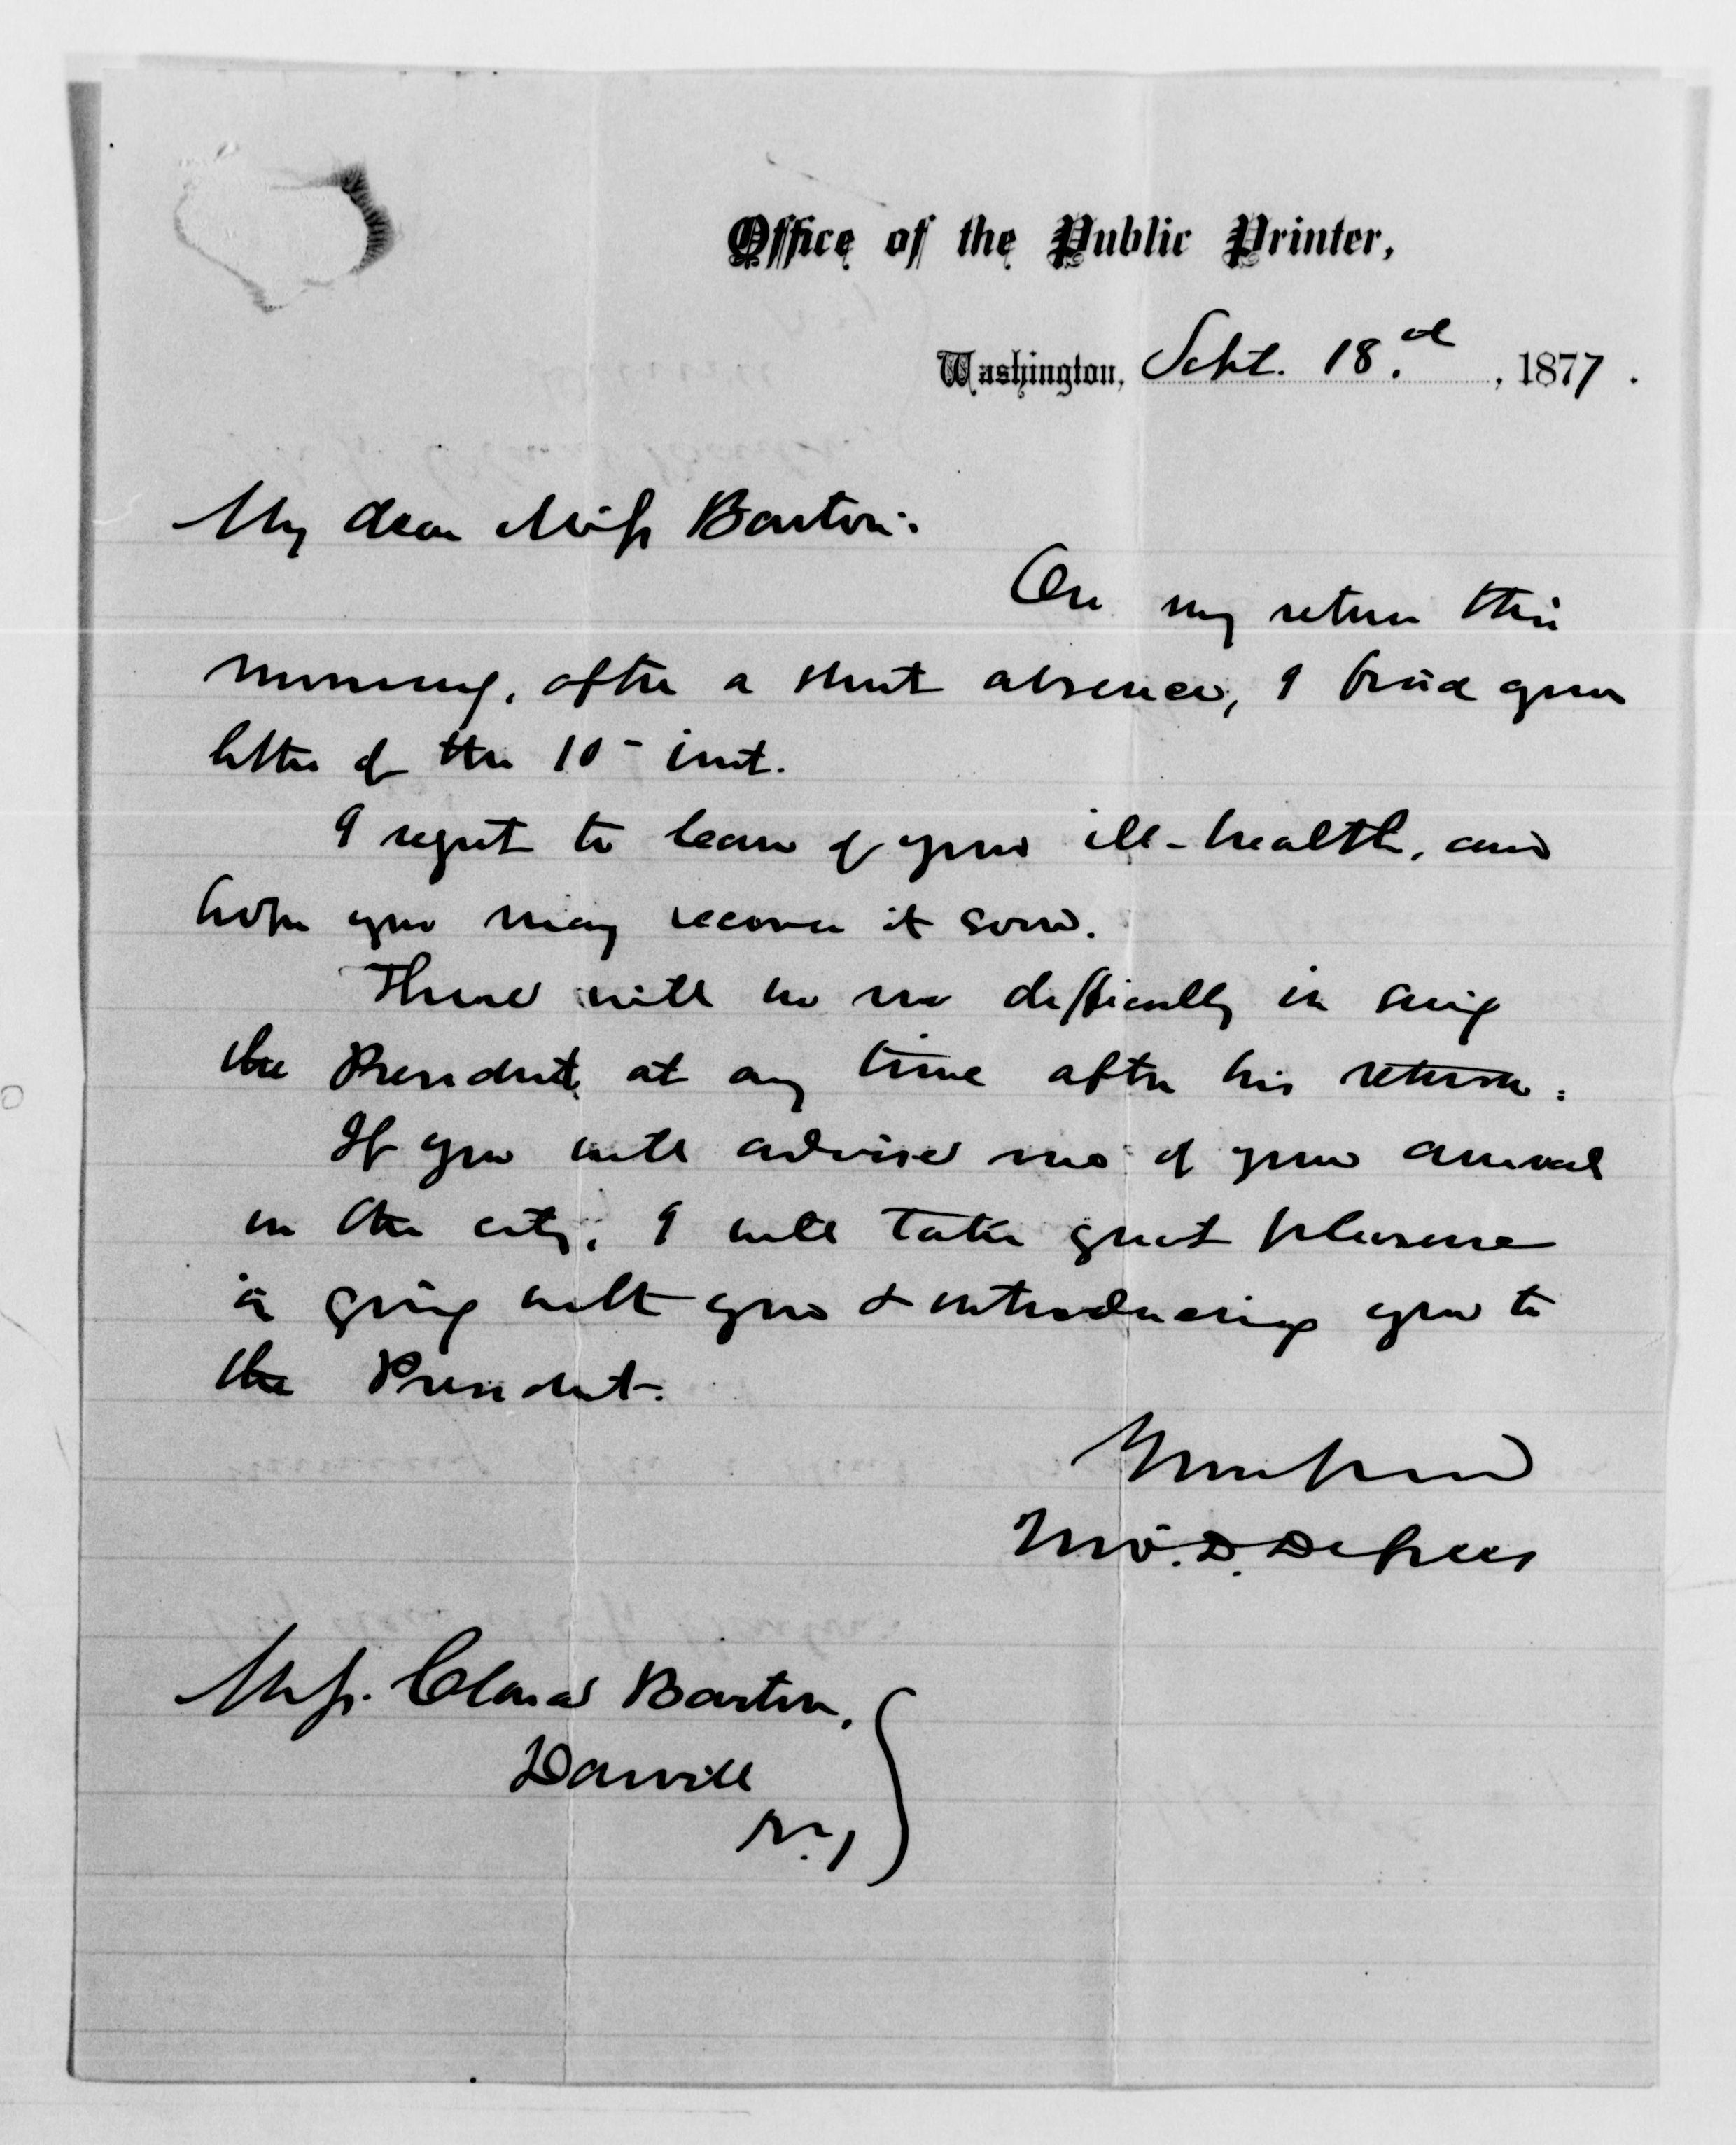 Office of the Public Printer,
Washington, Sept. 18.d, 1877.
My dear Miss Barton:
On my return this
morning, after a short absence, I find your
letter of the 10- inst.
I regret to learn of your ill-health, and
hope you may recover it soon.
There will be no difficulty in seeing
the President at any time after his return.
If you will advise me of your arrival
in the city, I will take great pleasure
in going with you & introducing you to
the President.
Your friend
Jno. D. Defrees
Miss. Clara Barton,
Danville
N.Y